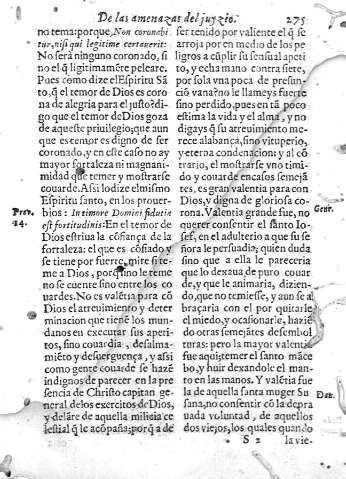 De las amenazas del juyzio. 275
no tema: porque, Non coronabi
tur, nisi qui legitime certauerit:
No será ninguno coronado, si
no el q̃ legitimamẽte peleare.
Pues como dize el Espiritu Sã
to, q̃ el temor de Dios es coro
na de alegria para el justo? di-
go que el temor de Dios goza
de aqueste priuilegio; que aun
que es temor es digno de ser
coronado, y en este caso no ay
mayor fortaleza ni magnani-
midad que temer y mostrarse
couarde. Assi lo dize el mismo
Espiritu santo, en los prouer-
Prov.
14.
bios: In timore Domini fidutia
est fortitudinis: En el temor de
Dios estriua la cõfiança de la
fortaleza: el que es cõfiado, y
se tiene por fuerte, mire si te-
me a Dios, porque no le teme
no se cuente sino entre los co
uardes. No es valẽtia para cõ
Dios el atreuimiento y deter
minacion que tienẽ los mun-
danos en executar sus apeti-
tos, sino couardia, desalma-
miẽto y desuerguença, y assi
como gente couarde se hazẽ
indignos de parecer en la pre
sencia de Christo capitan ge-
neral de los exercitos de Dios,
y delãre de aquella milicia ce
lestial q̃ le acõpaña; porq̃ a de
ser tenido por valiente el q̃ se
arroja por en medio de los pe
ligros a cũplir su sensual apeti
to, y echa mano contra siete,
por sola vna poca de presun-
ciõ vana? no le llameys fuerte
sino perdido, pues en tã poco
estima la vida y el alma, y no
digays q̃ su atreuimiento me-
rece alabança, sino vituperio,
y eterna condenacion: y al cõ
trario, el mostrarse vno timi-
do y couarde en casos semejã
tes, es gran valentia para con
Dios, y digna de gloriosa co-
rona. Valentia grande fue, no
Genr.
querer consentir el santo Io-
sef, en el adulterio a que su se
ñora le persuadia; quien duda
sino que a ella le pareceria
que lo dexaua de puro couar
de, y que le animaria, dizien-
do, que no temiesse, y aun se al
braçaria con el por quitarle
el miedo, y ocasionarle, haziẽ
do otras semejãtes desembol
turas: pero la mayor valentia
fue aqui temer el santo mãce
bo, y huir dexandole el man-
to en las manos. Y valẽtia fue
la de aquella santa muger Su
Dan.
sana, no consentir cõ la depra
uada voluntad, de aquellos
dos viejos, los quales quando
S 2 la vie-